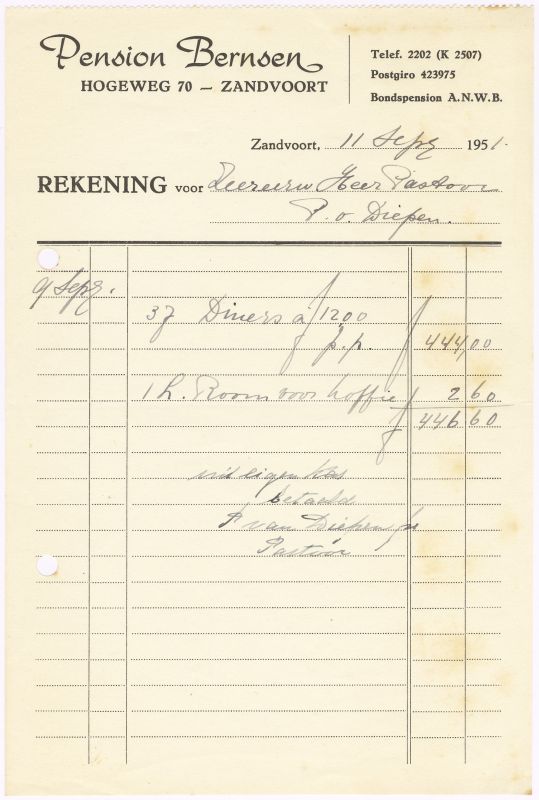 Pension Bernsen
HOGEWEG 70 — ZANDVOORT
Telef. 2202 (K 2507)
Postgiro 423975
Bondspension A.N.W.B.
Zandvoort, 11 Sept 1951.
REKENING voor Zeereerw Heer Pastoor
P. v. Diepen.
9 Sept.
37 Diners a ƒ 12 00
p.p. ƒ 444,00
1 L. Room voor koffie 2 60
ƒ 446 60
uit eigen kas
betaald
P van Diepen
Pastoor